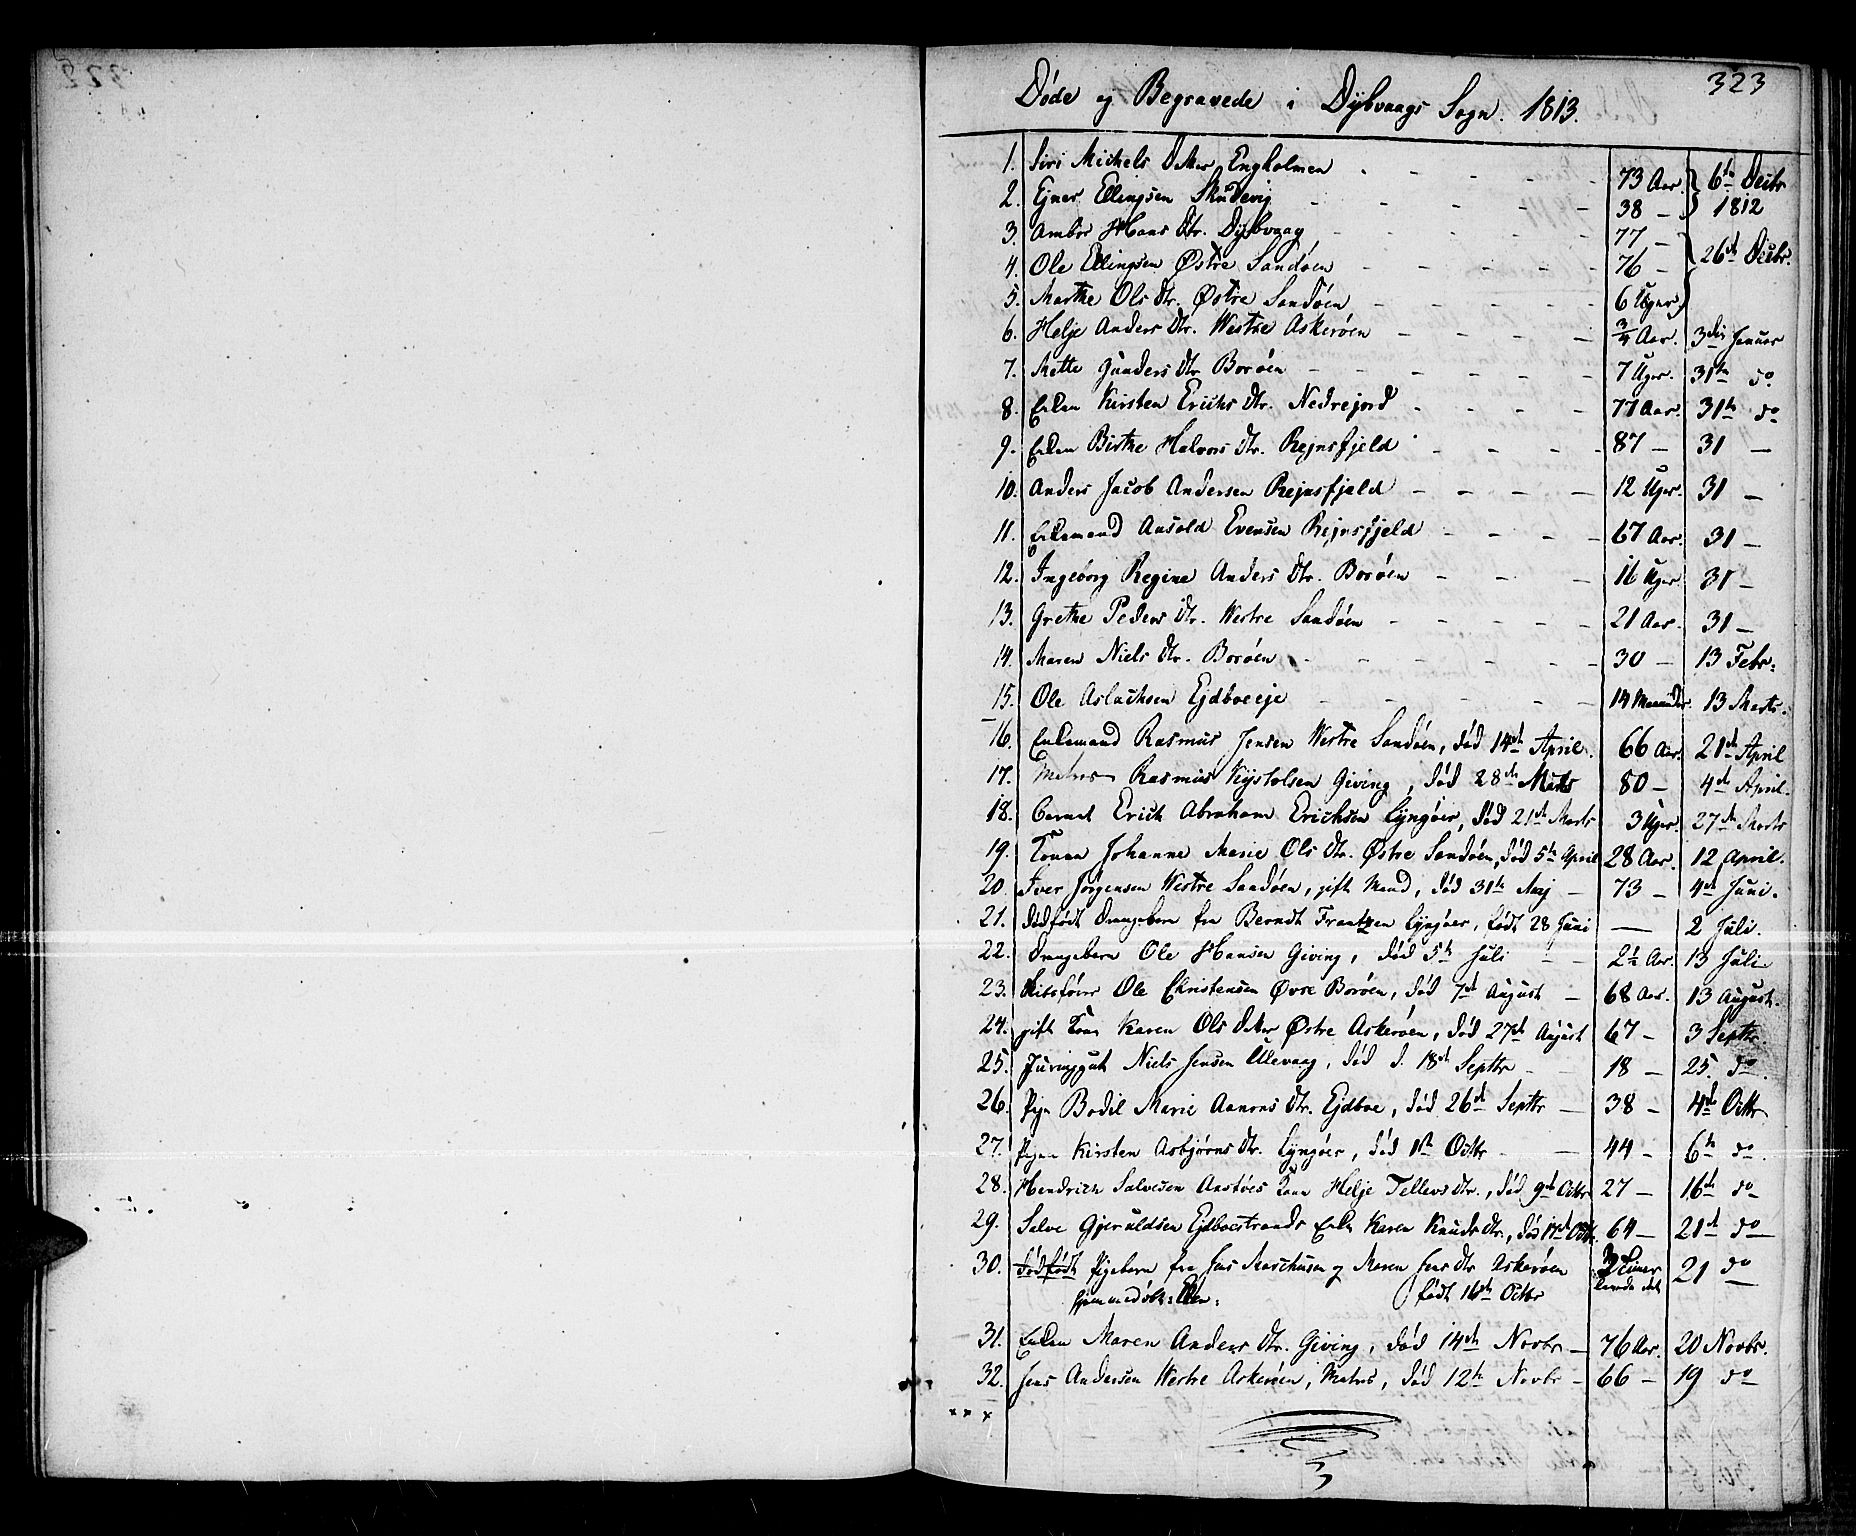 323
Døde og Begravede i Dybvaags Sogn. 1813.
1. Siri Michels Datter Engholmen - - - 73 Aar. 6te Decbr
2. Ejner Ellingsen Skudevig - - - 38 - 1812
3. Ambor Hans Dtr. Dybvaag - - - 77 -
4. Ole Ellingsen Østre Sandøen - - - 76 - 26de Decbr.
5. Marthe Ols Dtr. Østre Sandøen - - - 6 Uger
6. Helje Anders Dtr. Westre Askerøen - - - 3/4 Aar. 3die Januar
7. Mette Gunders Dtr Borøen - - - 7 Uger. 31te do
8. Enken Kirsten Erichs Dtr. Nedrejord - - - 77 Aar. 31te do
9. Enken Birthe Halvors Dtr. Rejnsfjeld - - - 87 - 31 -
10. Anders Jacob Andersen Rejnsfjeld - - - 12 Uger. 31 -
11. Enkemand Ansold Evensen Rejnsfjeld - - - 67 Aar. 31 -
12. Ingeborg Regine Anders Dtr. Borøen - - - 16 Uger 31 -
13. Grethe Peders Dtr. Westre Sandøen - - - 21 Aar. 31 -
14. Maren Niels Dtr. Borøen - - - 30 - 13 Febr:
15. Ole Aslachsen Ejdboeeje - - - 14 Maaneder. 13 Marts.
16. Enkemand Rasmus Jensen Westre Sandøen, død 14de April. 66 Aar. 21de April
17. Matros Rasmus Kystolsen Giving, død 28de Marts 80 - 4de April.
18. Barnet Erich Abraham Erichsen Lyngøer, død 21de Marts 3 Uger. 27de Marts
19. Konen Johanne Marie Ols Dtr. Østre Sandøen, død 5te April 28 Aar. 12 April.
20. Iver Jørgensen Westre Sandøen, gift Mand, død 31te Maj - 73 - 4de Juni.
21. dødfødt Drengebarn fra Berndt Frantzen Lyngøer, født 28 Juni - 2 Juli.
22. Drengebarn Ole Hansen Giving, død 5te Juli - - 2½ Aar. 13 Juli
23. Skibsfører Ole Christensen Øvre Borøen, død 7de August - 68 Aar. 13 August.
24. gift Kone Karen Ols Datter Østre Askerøen, død 27de August 67 - 3 Septbr.
25. Niels Jensen Ullevaag, død d. 18de Septbr - - 18 - 25. do.
26. Pigen Bodil Marie Aanons Dtr. Ejdboe, død 26de Septbr - 38 - 4de Octbr
27. Pigen Kirsten Asbjørns Dtr. Lyngøer, død 1ste Octbr - - 44 - 6te do.
28. Hendrich Salvesen Aastøes Kone Helje Tellevs Dtr., død 9de Octbr 27 - 16de do
29. Salve Gjeruldsen Ejdboestrands Enke Karen Knuds Dtr., død 17de Octbr. 64 - 21de do
30. dødfødt Pigebarn fra Jens Maschusen og Maren Jens Dtr Askerøen 21 do
hjemmedøbt: Elen: født 16de Octbr
31. Enken Maren Anders Dtr. Giving, død 14de Novbr - 76 Aar. 20 Novbr.
32. Jens Andersen Westre Askerøen, Matros, død 12te Novbr - 66 - 19 do